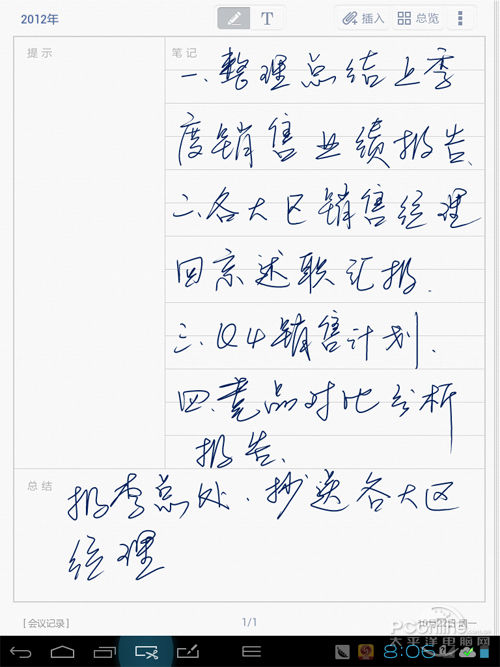 2012年
T
插入
总览
提示
笔记
一.整理总结上季
度销售业绩报告.
二.各大区销售经理
回京述职汇报.
三.Q4销售计划.
四.竞品对比分析
报告.
总结
报李总处.抄送各大区
经理
[会议记录]
1/1
10月22日 周一
PConline
太平洋电脑网
8:06